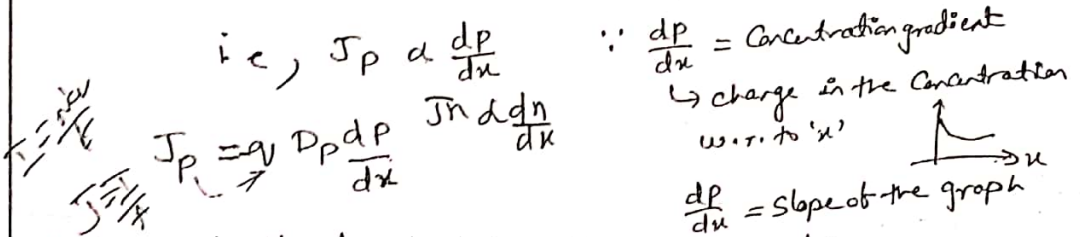 i e, Jp α dp/dx
∵ dp/dx = Concentration gradient
↳ change in the Concentration
w.r. to 'x'
Jp = q Dp dp/dx
Jn α dn/dx
x
dp/dx = Slope of the graph